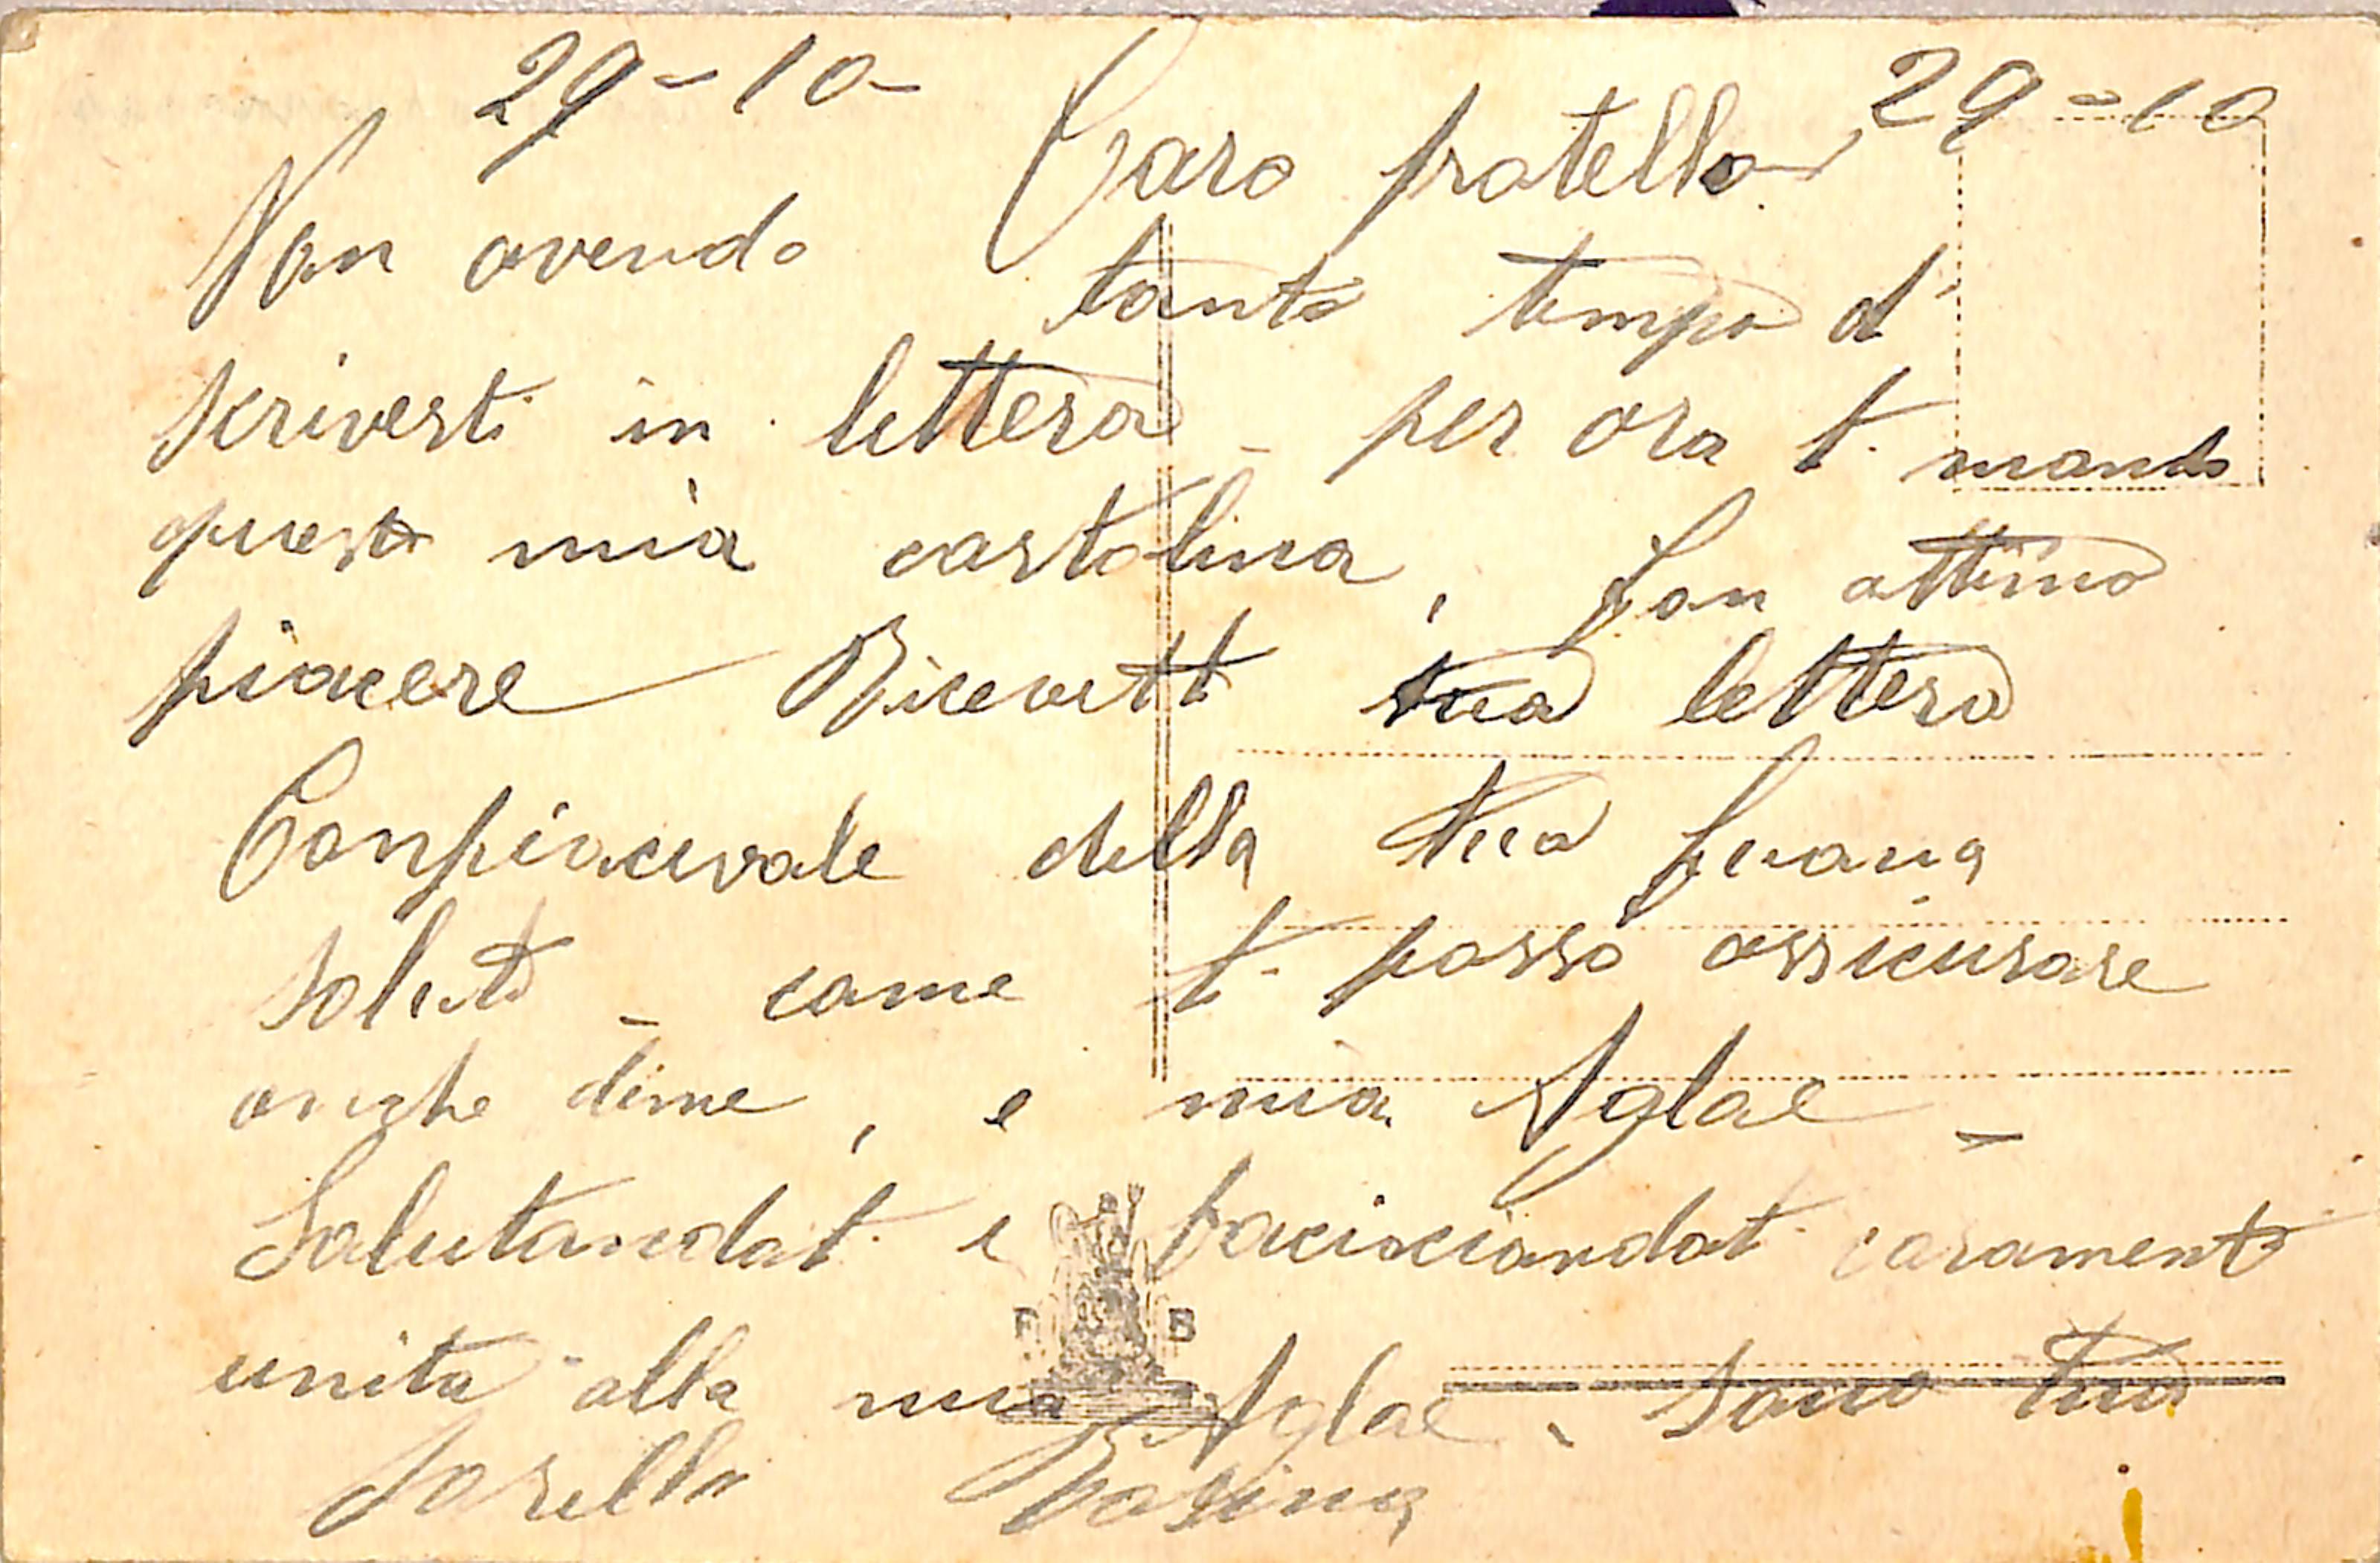 29-10- 29=10
Caro fratello
Non avendo tanto tempo di
scriverti in lettera - per ora ti mando
questa mia cartolina, Con attimo
piacere Ricevetti tua lettera
Conpiacevale della tua buana
saluto - come ti posso assicurare
anche dime, e mia Aglae -
Salutandoti e baciciandoti caramente
unita alla mia Aglae, sono tua
sorella Rosina
F B